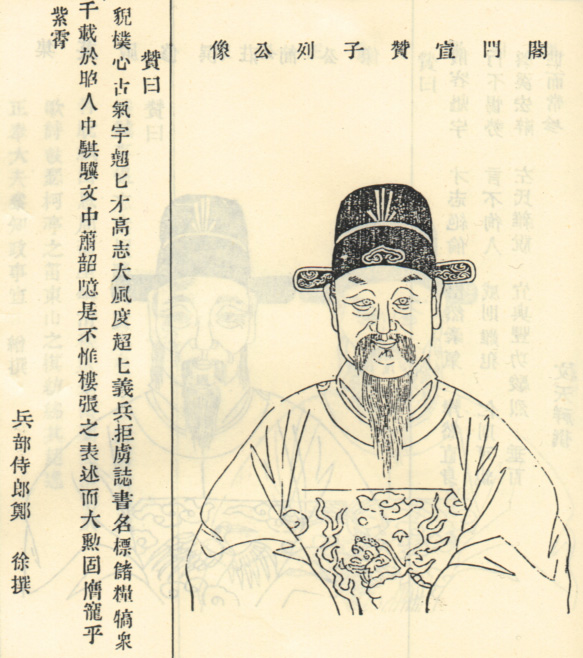 閣門宣贊子列公像
贊曰
貌樸心古氣宇翹匕才高志大風度超匕義兵拒虜誌書名標餉糧犒衆
千載於昭人中騏驥文中蕭韶噫是不惟樓張之表述而大勲固膺寵乎
紫霄
兵部侍郎鄭　徐撰